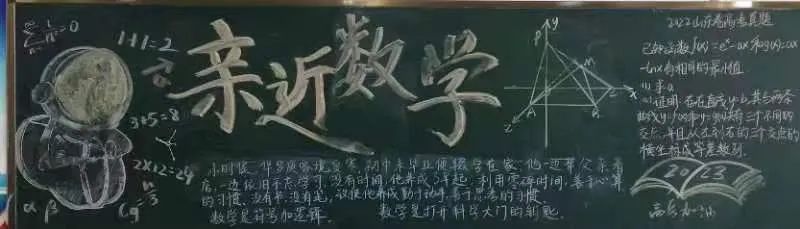 亲近数学
1+1=2
3+5=8
2×12=24
α β
y
P
M
A
B
x
z
2022山东卷高考真题
已知函数f(x)=e^x-ax和g(x)=ax
-lnx有相同的最小值
(1)求a
(2)证明:存在直线y=b,其与两条
曲线y=f(x)和y=g(x)共有三个不同的
交点,并且从左到右的三个交点的
横坐标成等差数列.
小时候,华罗庚家境贫寒,初中未毕业便辍学在家,他一边帮父亲看
店,一边依旧不忘学习,没有时间,他养成了早起,利用零碎时间,善于心算
的习惯.没有书,没有笔,这使他养成勤于动手,善于思考的习惯.
数学是符号加逻辑. 数学是打开科学大门的钥匙.
2023
高考加油